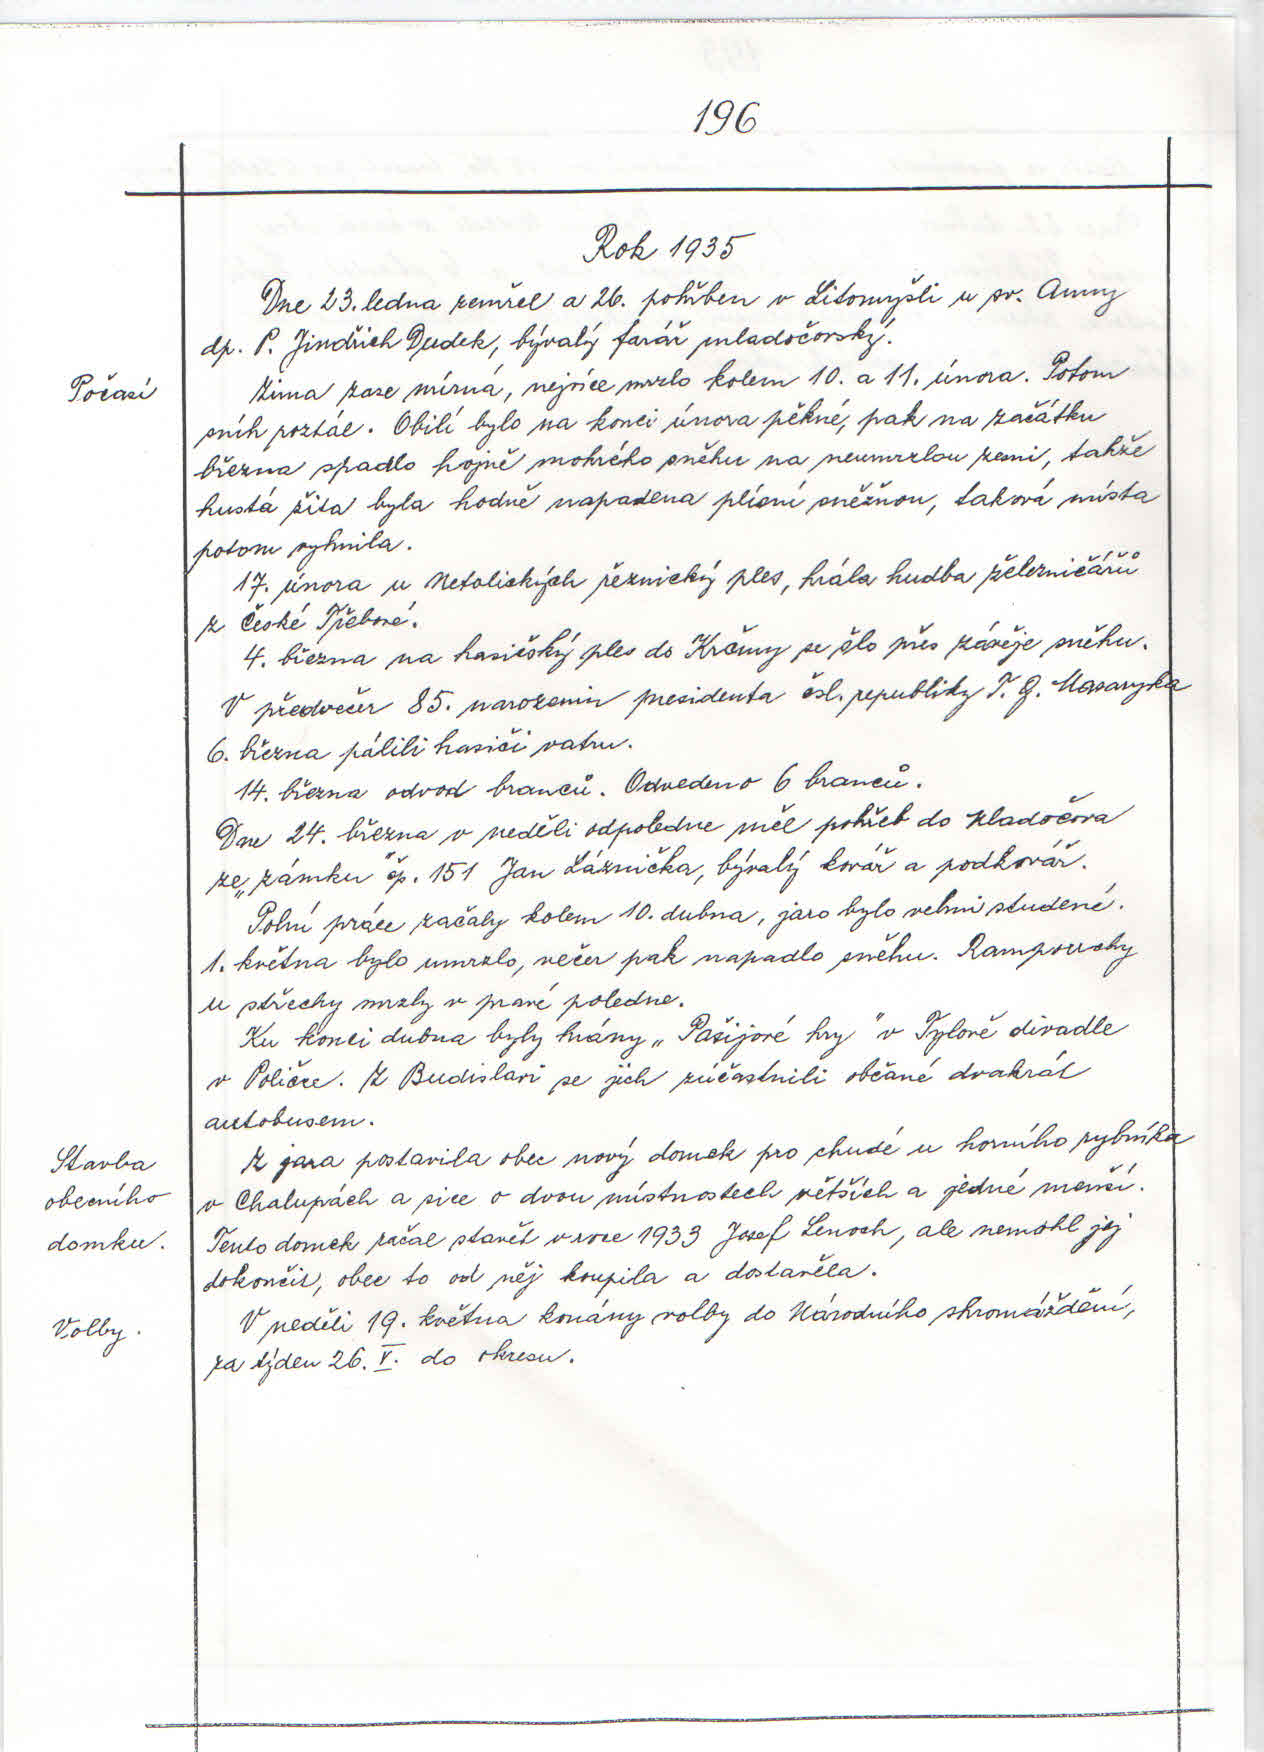 196
Rok 1935
Dne 23. ledna zemřel a 26. pohřben v Litomyšli u sv. Anny
dp. P. Jindřich Dudek, bývalý farář mladočovský.
Počasí
Zima zase mírná, nejvíce mrzlo kolem 10. a 11. února. Potom
sníh roztál. Obilí bylo na konci února pěkné, pak na začátku
března spadlo hojně mokrého sněhu na neumrzlou zemi, takže
hustá žita byla hodně napadena plísní sněžnou, taková místa
potom vyhnila.
17. února u Netolických řeznický ples, hrála hudba železničářů
z České Třebové.
4. března na hasičský ples do Krčmy se šlo přes závěje sněhu.
V předvečer 85. narozenin presidenta čsl. republiky T. G. Masaryka
6. března pálili hasiči vatru.
14. března odvod branců. Odvedeno 6 branců.
Dne 24. března v neděli odpoledne měl pohřeb do Mladočova
ze „zámku" čp. 151 Jan Láznička, bývalý kovář a podkovář.
Polní práce začaly kolem 10. dubna, jaro bylo velmi studené.
1. května bylo umrzlo, večer pak napadlo sněhu. Rampouchy
u střechy mrzly v pravé poledne.
Ku konci dubna byly hrány „Pašijové hry" v Tylově divadle
v Poličce. Z Budislavi se jich zúčastnili občané dvakrát
autobusem.
Stavba
obecního
domku.
Z jara postavila obec nový domek pro chudé u horního rybníka
v Chalupách a sice o dvou místnostech větších a jedné menší.
Tento domek začal stavět v roce 1933 Josef Lenoch, ale nemohl jej
dokončit, obec to od něj koupila a dostavěla.
Volby.
V neděli 19. května konány volby do Národního shromáždění,
za týden 26. V. do okresu.